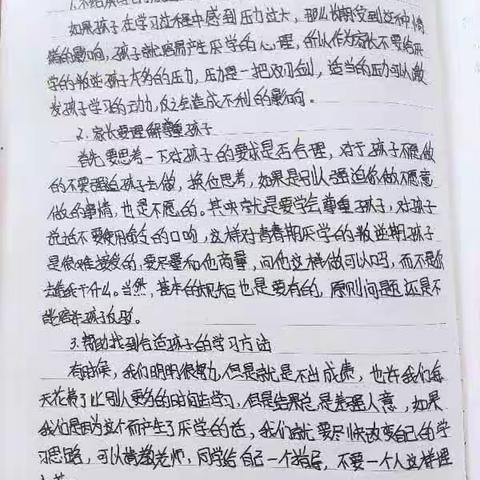 如果孩子在学习过程中感到压力过大，那么长期受到这种情
绪的影响，孩子就容易产生厌学的心理，所以作为家长不要给厌
学的叛逆孩子太多的压力，压力是一把双刃剑，适当的压力可以激
发孩子学习的动力，反之造成不利的影响。
2.家长要理解尊重孩子
首先，要思考一下对孩子的要求是否合理，对于孩子不愿做
的不要强迫孩子去做，换位思考，如果是别人强迫你做不愿意
做的事情，也是不愿的。其次就是要学会尊重孩子，对孩子
说话不要使用命令的口吻，这样对青春期厌学的叛逆期孩子
是很难接受的，要尽量和他商量，问他这样做可以吗，而不是你
去给我干什么。当然，基本的规矩也是要有的，原则问题还是不
能陪着孩子
3.帮助找到合适孩子的学习方法
有时候，我们明明很努力，但是就是不出成绩，也许我们每
天花费了比别人更多的时间去学习，但是结果总是差强人意，如果
我们是因为这个而产生了厌学的话，我们就要尽快改变自己的学
习思路，可以请教老师，同学给自己一个指导，不要一个人这样埋